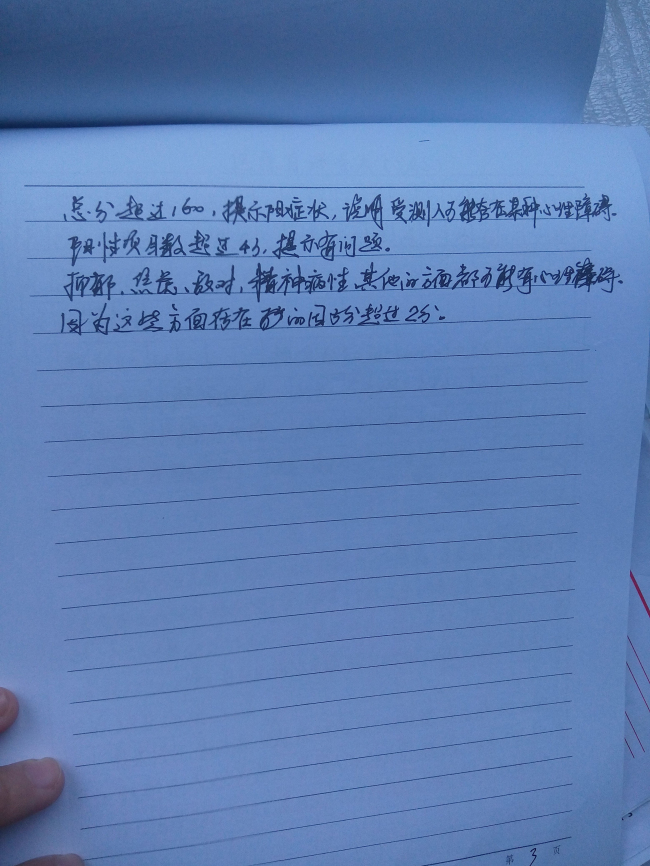 总分超过160,提示阳症状,说明受测人可能存在某种心性障碍.
阳性项目数超过43,提示有问题。
抑郁、焦虑、敌对、精神病性、其他的方面都可能有心性障碍.
因为这些方面存在的因子分超过2分.
第 3 页